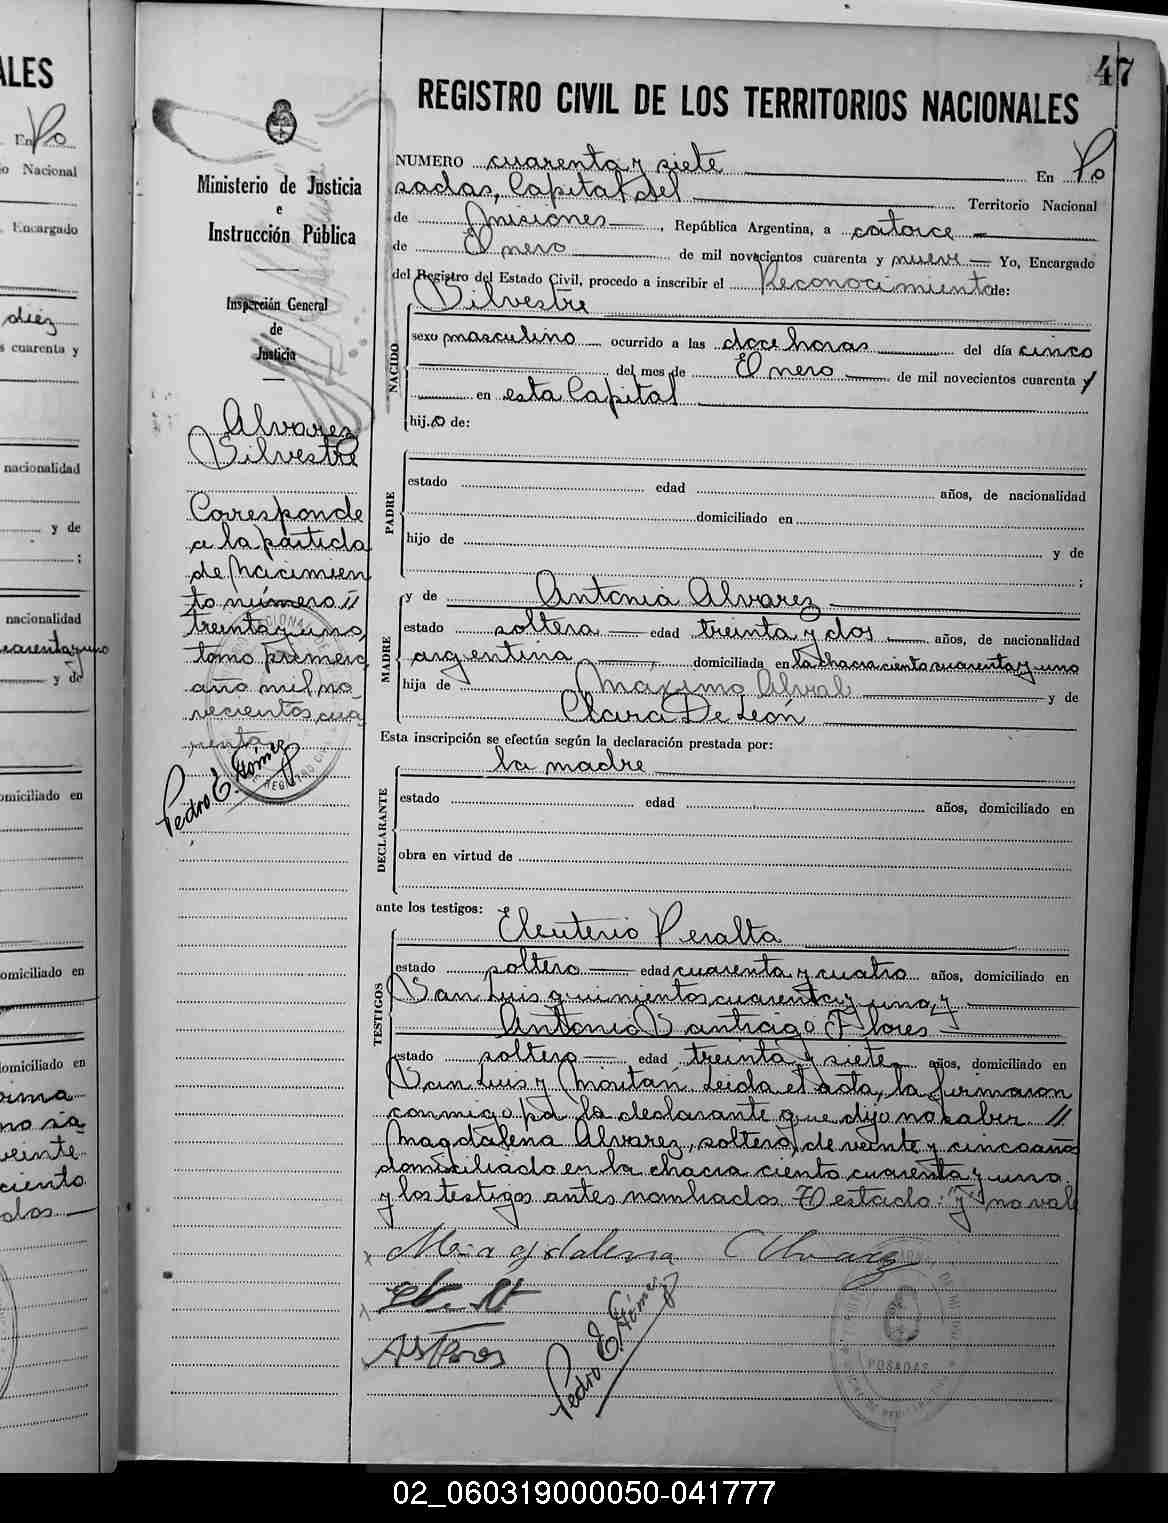 47
REGISTRO CIVIL DE LOS TERRITORIOS NACIONALES
Ministerio de Justicia
e
Instrucción Pública
Inspección General
de
Justicia
Alvarez
Silvestre
Corresponde
a la partida
de Nacimien
to número //
treinta y uno,
tomo primero
año mil no
vecientos cua
renta
Pedro E. Gómez
NUMERO cuarenta y siete En Po
sadas, Capital del Territorio Nacional
de Misiones, República Argentina, a catorce
de Enero de mil novecientos cuarenta y nueve Yo, Encargado
del Registro del Estado Civil, procedo a inscribir el Reconocimiento de:
NACIDO
Silvestre
sexo masculino ocurrido a las doce horas del día cinco
del mes de Enero de mil novecientos cuarenta y
en esta Capital
hijo de:
PADRE
estado edad años, de nacionalidad
domiciliado en
hijo de y de
;
MADRE
y de Antonia Alvarez
estado soltera edad treinta y dos años, de nacionalidad
argentina, domiciliada en la chacra ciento cuarenta y uno
hija de Maximo Alvab y de
Clara De León
Esta inscripción se efectúa según la declaración prestada por:
la madre
DECLARANTE
estado edad años, domiciliado en
obra en virtud de
ante los testigos: Eleuterio Peralta
TESTIGOS
estado soltero edad cuarenta y cuatro años, domiciliado en
San Luis quinientos cuarenta y uno, y
Antonio Santiago Flores
estado soltero edad treinta y siete años, domiciliado en
San Luis y Moritán. Leida el acta, la firmaron
conmigo pa la declarante que dijo no saber //
Magdalena Alvarez, soltera, de veinte y cinco años
domiciliado en la chacra ciento cuarenta y uno
y los testigos antes nombrados. estado: "y" no vale
Magdalena Alvarez
Pedro E. Gómez
POSADAS
ALES
En Po
o Nacional
Encargado
diez
s cuarenta y
nacionalidad
y de
;
nacionalidad
cuarenta y uno
y de
omiciliado en
omiciliado en
omiciliado en
veinte
ciento
dos
02_060319000050-041777